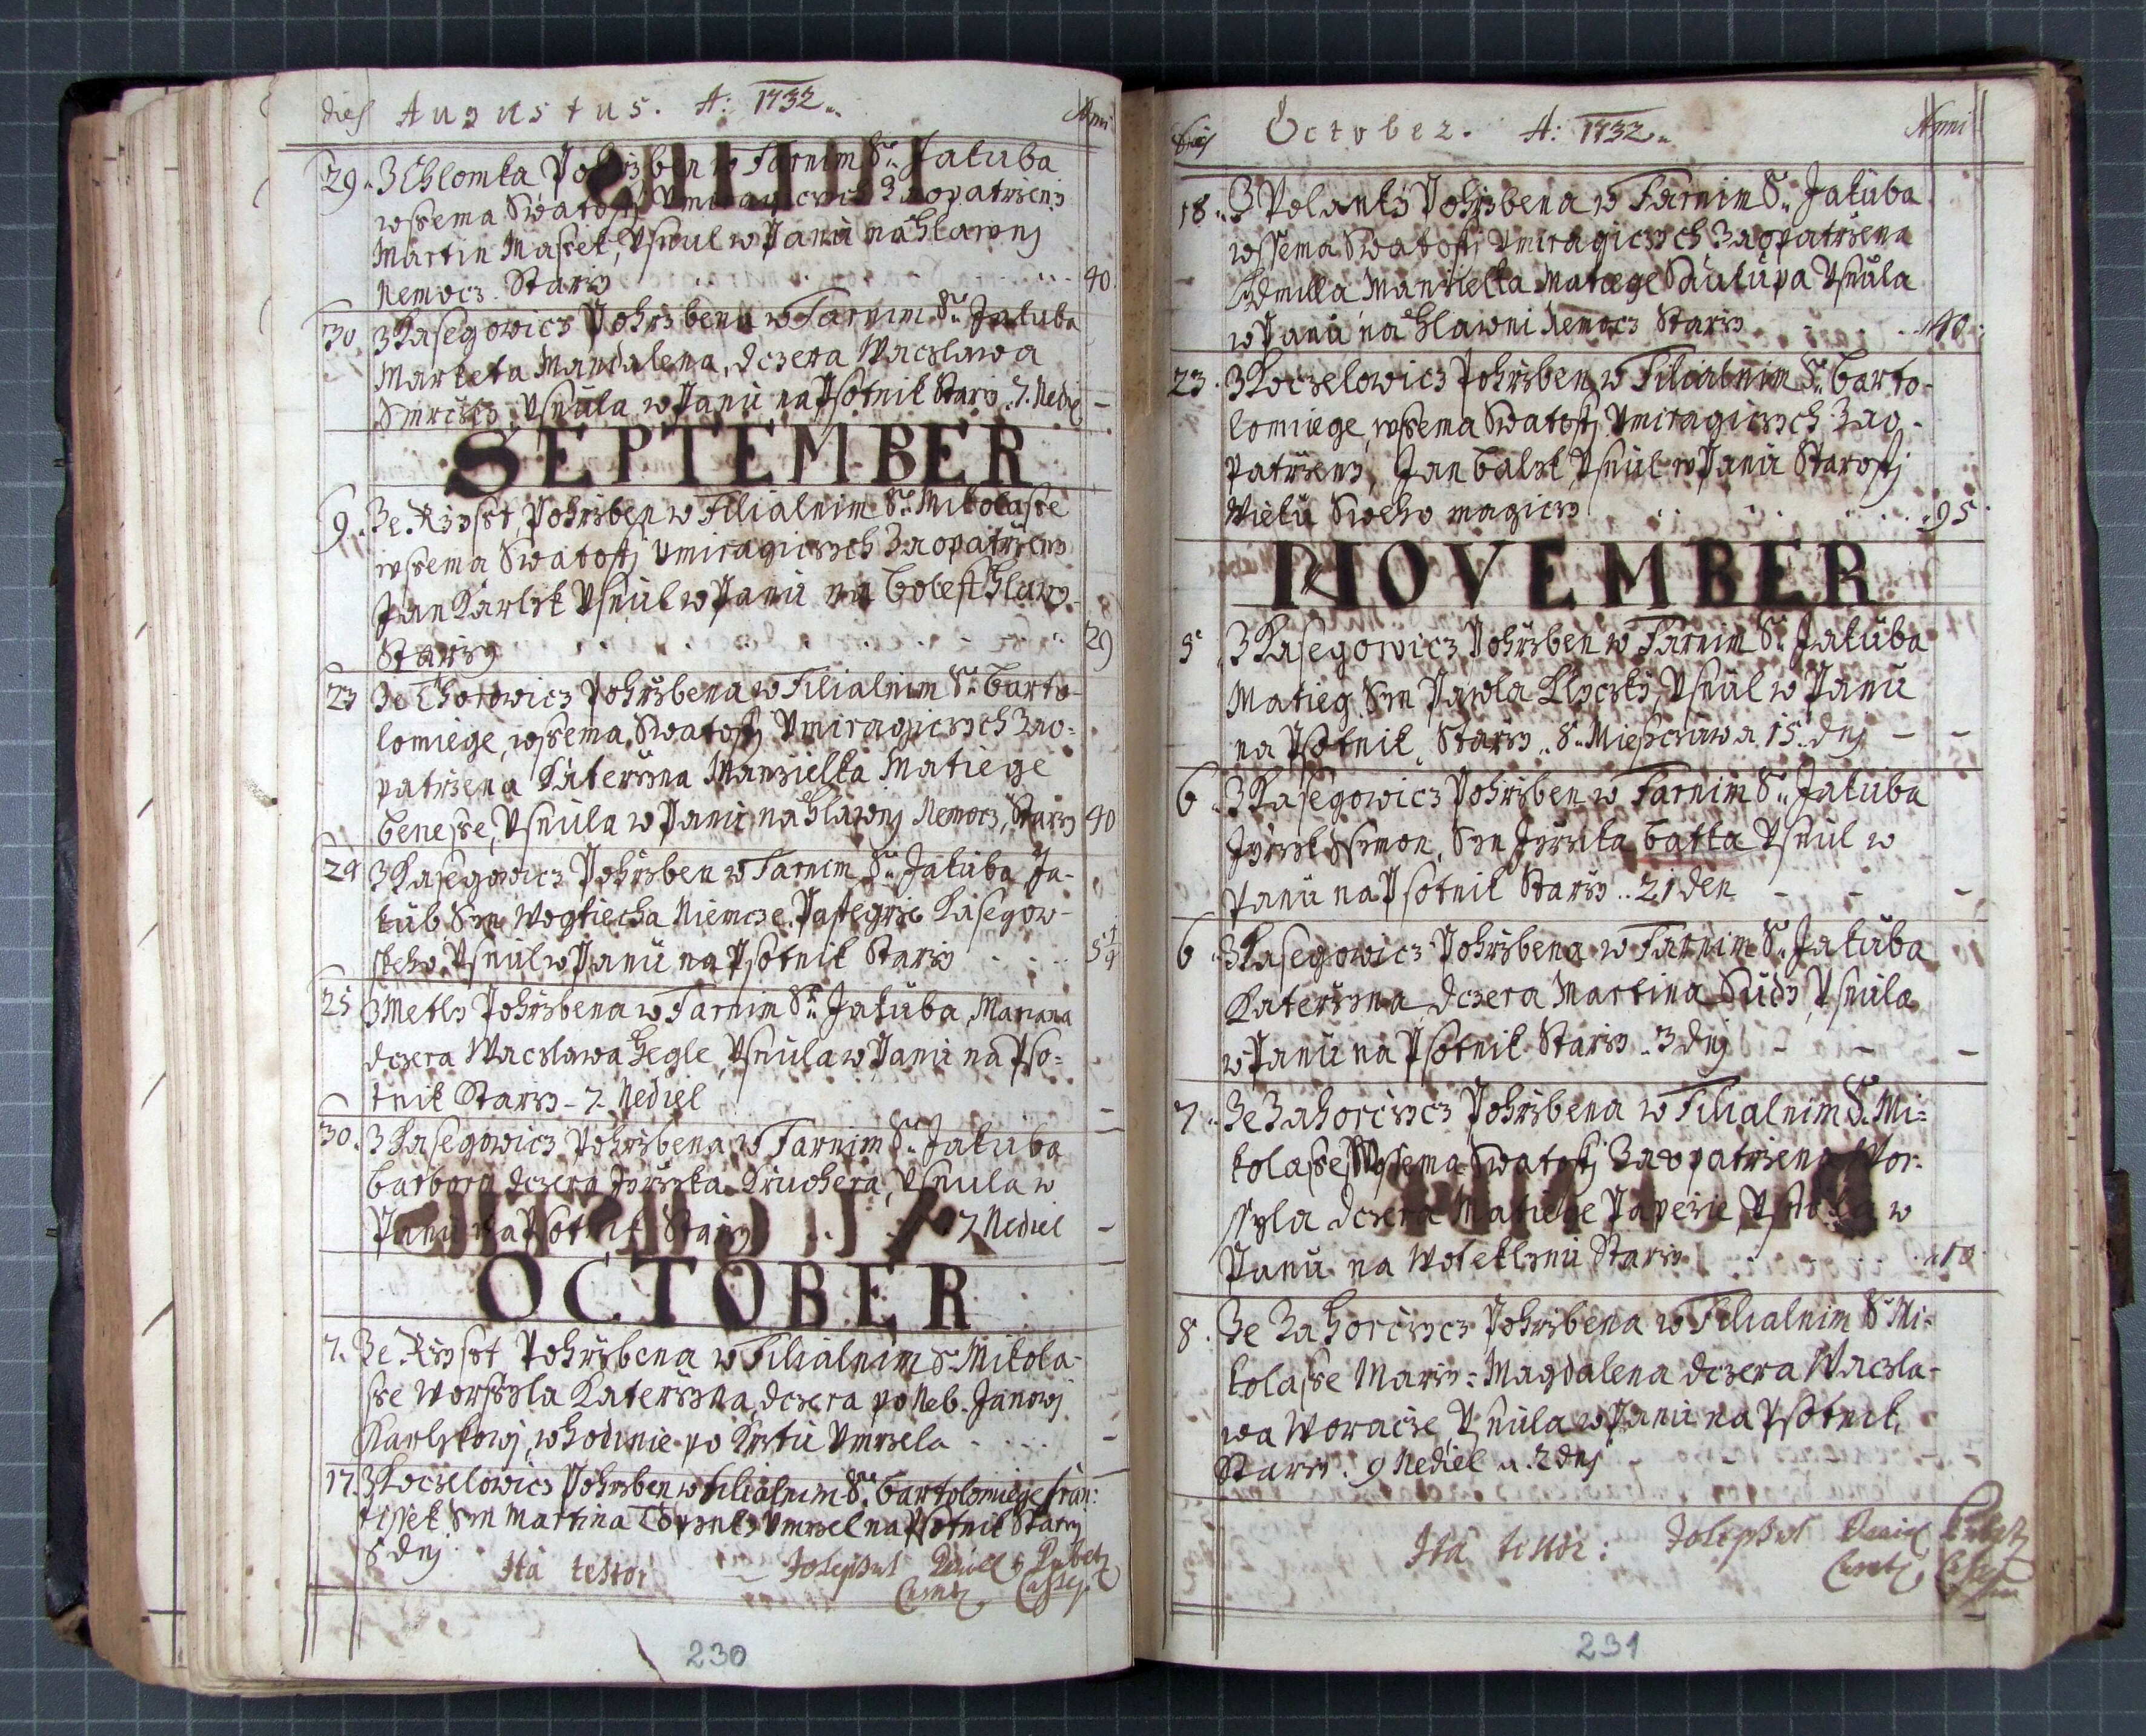 dies Augustus. A: 1732. Anni
29. Z Chlomka Pohržben w Farnim S. Jakuba
wssema Swatostj Umiragiczich Zaopatrženy
Martin Massek, Usnul w Panu na Hlawnj
Nemocz. Starzy 40.
30. Z Kasegowicz Pohržbena w Farnim S. Jakuba
Marketa Mandalena, dczera Waczlawa
Smrczky, Usnula w Panu na Psotnik Starzy 7. Nediel —
SEPTEMBER
9. Ze Ržisst Pohržben w Filialnim S. Mikolasse
wssema Swatostj Umiragiczych Zaopatrženy
Jan Karlyk Usnul w Panu na bolest Hlawy.
Starzy 29
23 Ze Chotowicz Pohržbena w Filialnim S. Barto-
lomiege, wssema Swatostj Umiragiczych Zao-
patržena Katerzyna Manzielka Matiege
Benesse, Usnula w Panu na Hlawnj Nemocz, Starzy 40
24 Z Kasegowicz Pohržben w Farnim S. Jakuba Ja-
kub Syn Wogtiecha Niemcze Pastegrže Kasegow-
skeho, Usnul w Panu na Psotnik Starzy 5 1/4
25 Z Metly Pohržbena w Farnim S. Jakuba, Mariana
dczera Waczlawa Hegle, Usnula w Panu na Pso-
tnik Starzy - 7. Nediel —
30. Z Kasegowicz Pohržbena w Farnim S. Jakuba
Barbora dczera Jiržika Kruchera, Usnula w
Panu na Psotnik Starzy 7 Nediel —
OCTOBER
7. Ze Ržisst Pohržbena w Filialnim S. Mikola-
sse Worssyla Katerzyna, dczera po Neb. Janowj
Karlykowj, w hodinie po Krztu Umrzela —
17. Z Koczelowicz Pohržben w Filialnim S. Bartolomiege fran-
tissek Syn Martina Umrzel na Psotnik Starzy
8 dnj
Ita testor
230
Dies October. A: 1732. Anni
18. Z Polanky Pohržbena w Farnim S. Jakuba
wssema Swatostj Umiragiczych Zaopatržena
Lidmilla Manzielka Matiege Saulupa Usnula
w Panu na Hlawni Nemocz Starzy 40.
23. Z Koczelowicz Pohržben w Filialnim S. Barto-
lomiege, wssema Swatostj Umiragiczych Zao-
patrženy, Jan Usnul w Panu Starostj
Wieku Sweho magicz 95.
NOVEMBER
5 Z Kasegowicz Pohržben w Farnim S. Jakuba
Matieg Syn Pawla Usnul w Panu
na Psotnik, Starzy 8. Miesczuw a 15. dnj — —
6. Z Kasegowicz Pohržben w Farnim S. Jakuba
Jiržik Ssimon, Syn Jiržika Batka Usnul w
Panu na Psotnik Starzy .. 21 den — — —
6 Z Kasegowicz Pohržbena w Farnim S. Jakuba
Katerzyna dczera Martina Sudy, Usnula
w Panu na Psotnik Starzy .. 3 dnj — — —
7. Ze Zahorcziczcz Pohržbena w Filialnim S. Mi-
kolasse Wssema Swatostj Zaopatržena Wor-
ssyla dczera Matiege Papeže, Usnula w
Panu na Woteklynu Starzy 10
8. Ze Zahorcziczcz Pohržbena w Filialnim S. Mi-
kolasse Marzy-Magdalena dczera Waczla-
wa Woracze, Usnula w Panu na Psotnik,
Starzy. 9 Nediel a. 2 dnj —
Ita testor:
231